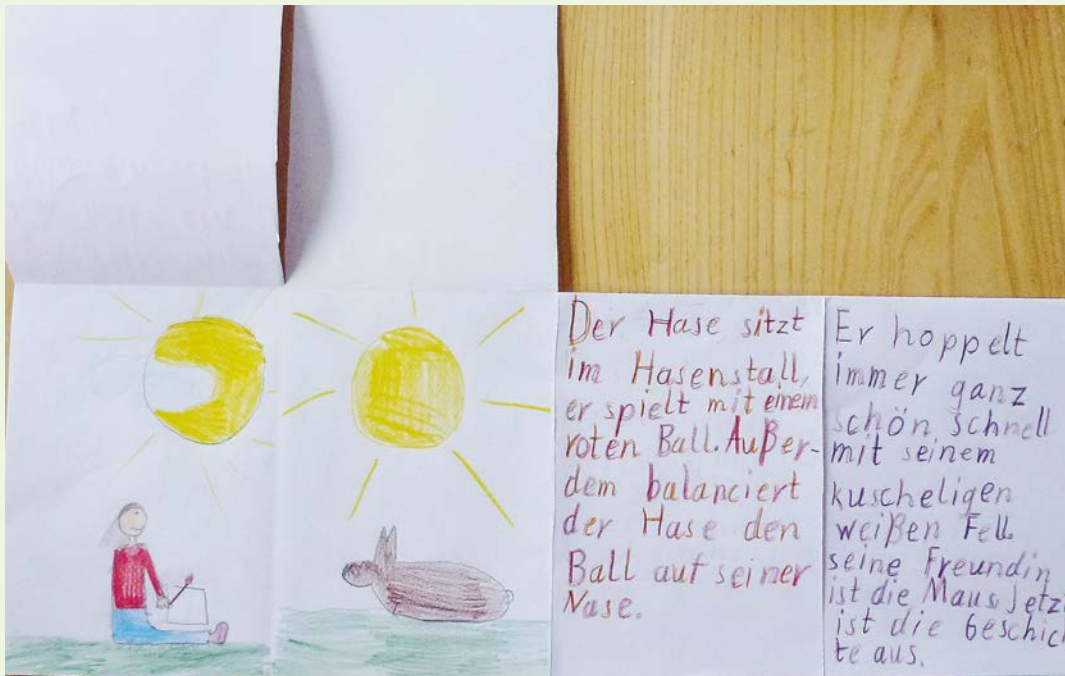 Der Hase sitzt
im Hasenstall,
er spielt mit einem
roten Ball. Außer-
dem balanciert
der Hase den
Ball auf seiner
Nase.
Er hoppelt
immer ganz
schön schnell
mit seinem
kuscheligen
weißen Fell.
seine Freundin
ist die Maus, jetz
ist die Geschich
te aus.